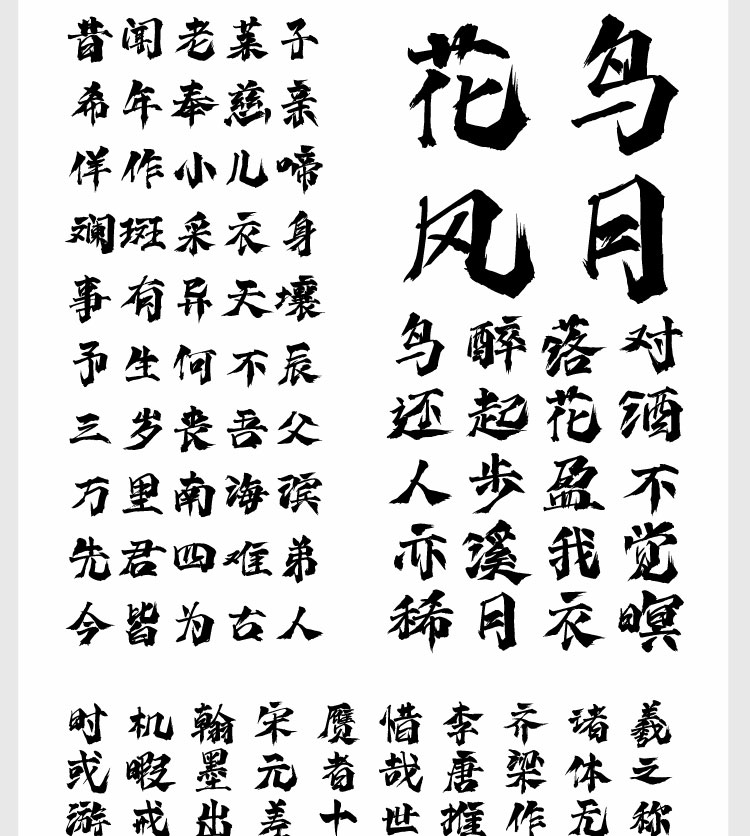 昔闻老莱子
希年奉慈亲
佯作小儿啼
斓斑采衣身
事有异天壤
予生何不辰
三岁丧吾父
万里南海滨
先君四难弟
今皆为古人
花鸟
风月
对酒不觉暝
落花盈我衣
醉起步溪月
鸟还人亦稀
羲之称
诸体无
齐梁作
李唐推
惜哉世
赝者十
宋元差
翰墨出
机暇戒
时或游